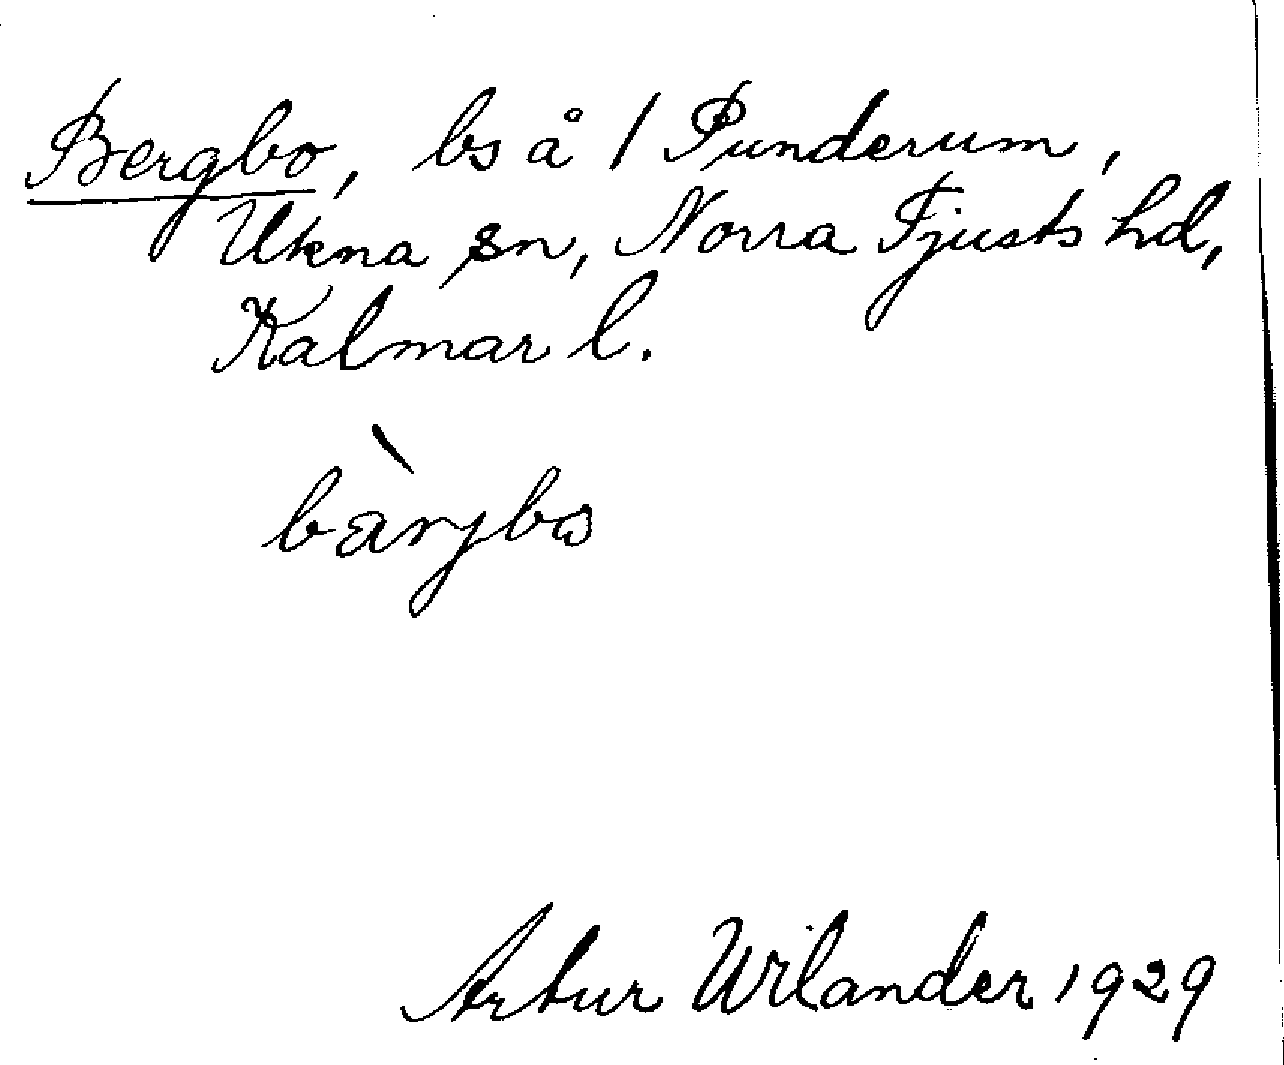 Bergbo, bs å / Punderum,
Ukna sn, Norra Tjusts hd,
Kalmar l.
bàrjbω
Artur Wilander 1929